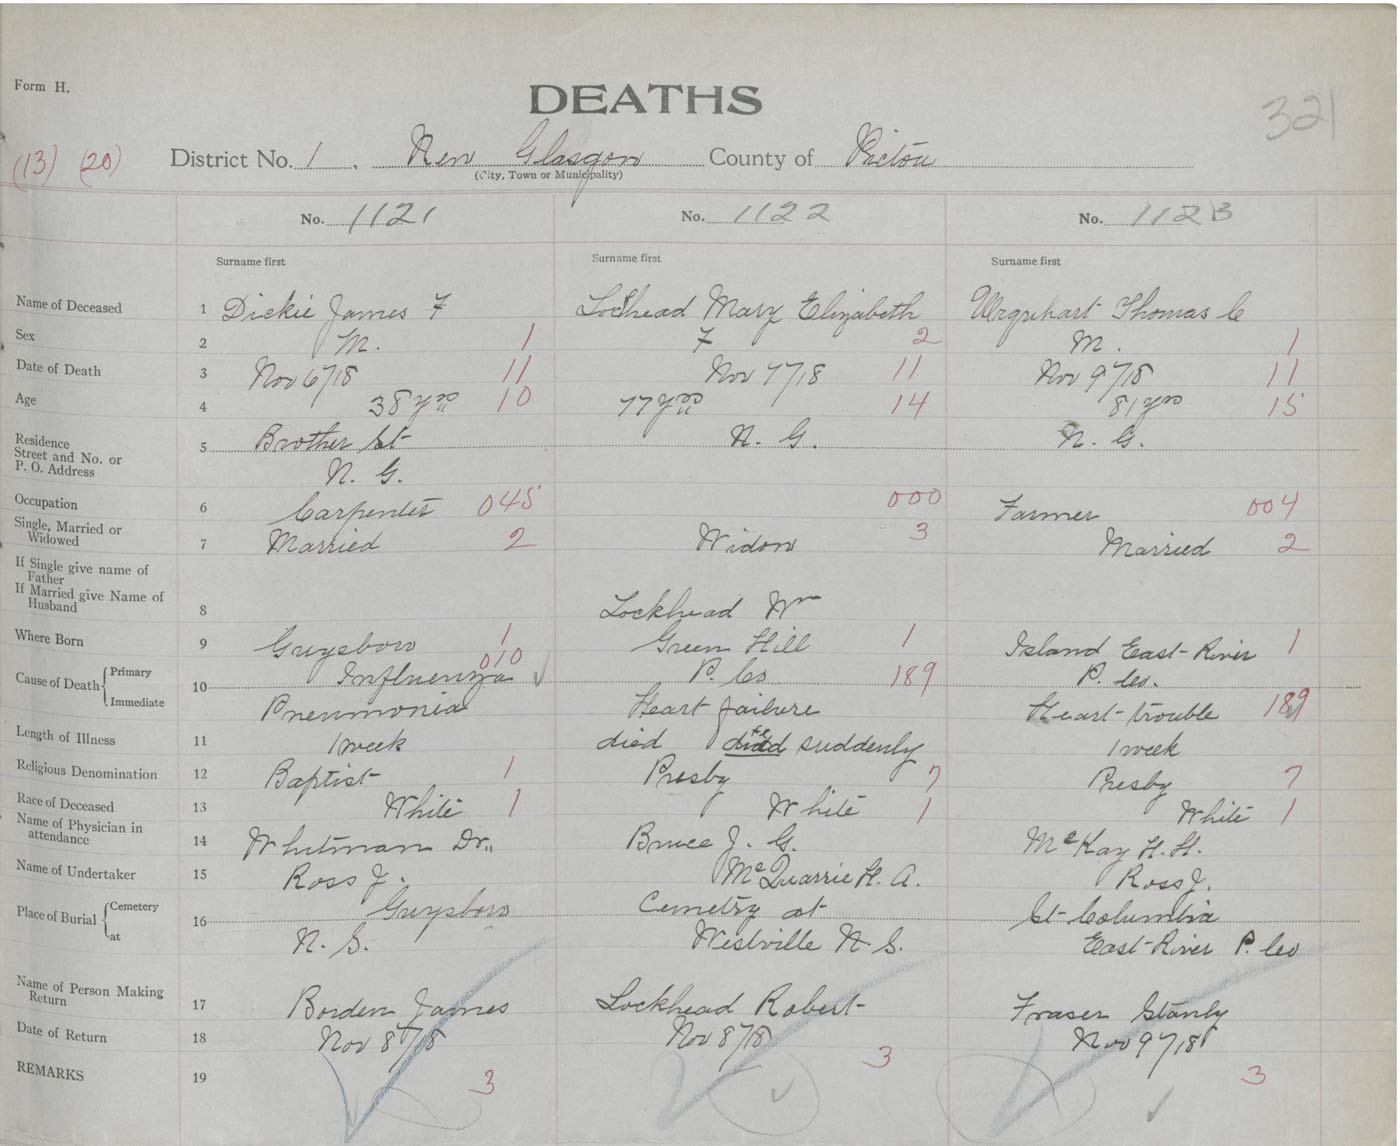 Form H.
DEATHS
321
(13) (20)
District No. 1. New Glasgow County of Pictou
(City, Town or Municipality)
No. 1121 No. 1122 No. 1123
Surname first Surname first Surname first
Name of Deceased 1 Dickie James F Lockhead Mary Elizabeth Urquhart Thomas C
Sex 2 M. 1 F 2 M. 1
Date of Death 3 Nov 6/18 11 Nov 7/18 11 Nov 9/18 11
Age 4 38 yrs 10 77 yrs 14 81 yrs 15
Residence
Street and No. or
P. O. Address
5 Brother St N. G. N. G.
N. G.
Occupation 6 Carpenter 045 000 Farmer 004
Single, Married or
Widowed
7 Married 2 Widow 3 Married 2
If Single give name of
Father
If Married give Name of
Husband
8 Lockhead Wm
Where Born 9 Guysboro 1 Green Hill 1 Island East River 1
P. Co P. Co.
Cause of Death { Primary
Immediate
10 Influenza 010 189
Pneumonia Heart failure Heart trouble 189
Length of Illness 11 1 week died suddenly 1 week
Religious Denomination 12 Baptist 1 Presby 7 Presby 7
Race of Deceased 13 White 1 White 1 White 1
Name of Physician in
attendance
14 Whitman Dr. Bruce J. G. McKay H. H.
Name of Undertaker 15 Ross J. McQuarrie H. A. Ross J.
Place of Burial { Cemetery
at
16 Guysboro Cemetry at St Columbia
N. S. Westville N. S. East River P. Co
Name of Person Making
Return
17 Borden James Lockhead Robert Fraser Stanly
Date of Return 18 Nov 8/18 Nov 8/18 Nov 9/18
REMARKS 19 3 3 3